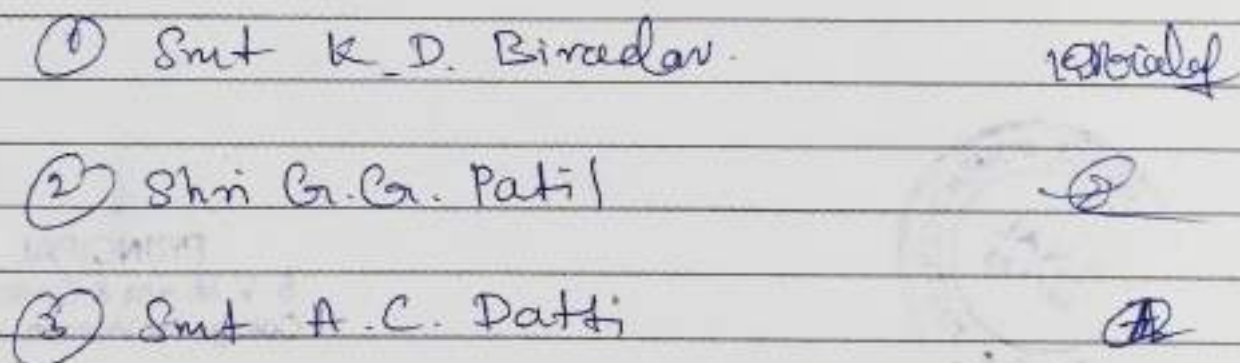 ① Smt K.D. Biradar.
② Shri G.G. Patil
③ Smt A.C. Datti